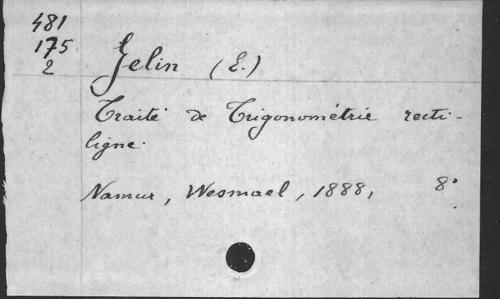 481
175
2
Gelin (E.)
Traité de Trigonométrie recti-
ligne.
Namur, Wesmael, 1888, 8°